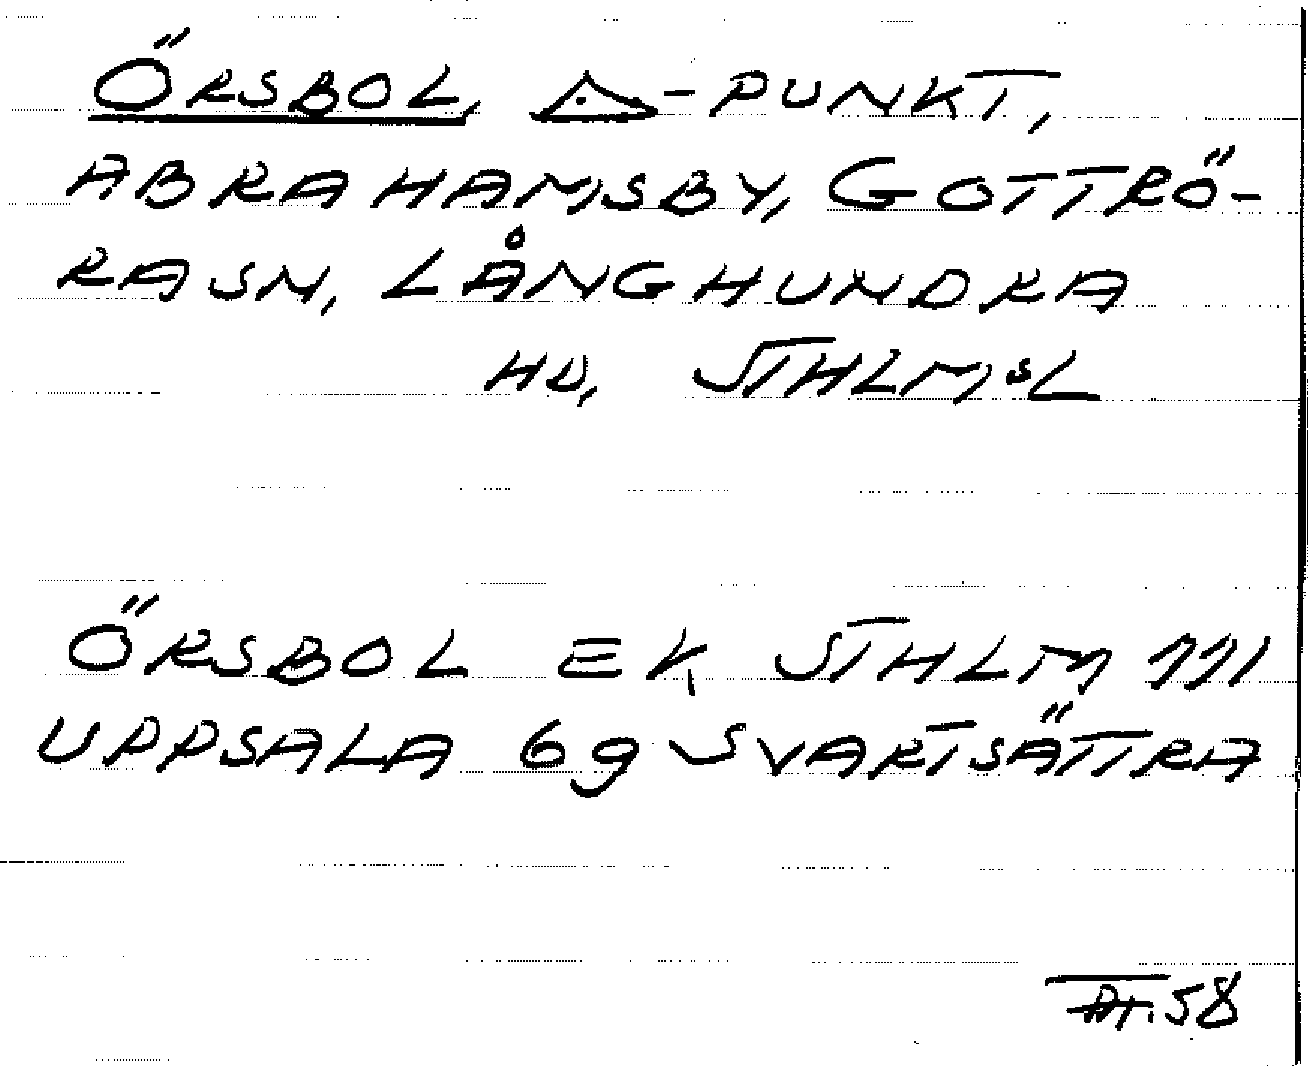 ÖRSBOL, △-PUNKT,
ABRAHAMSBY, GOTTRÖ-
RASN, LÅNGHUNDRA
HD, STHLMSL
ÖRSBOL EK STHLM 111
UPPSALA 69 SVARTSÄTTRA
58